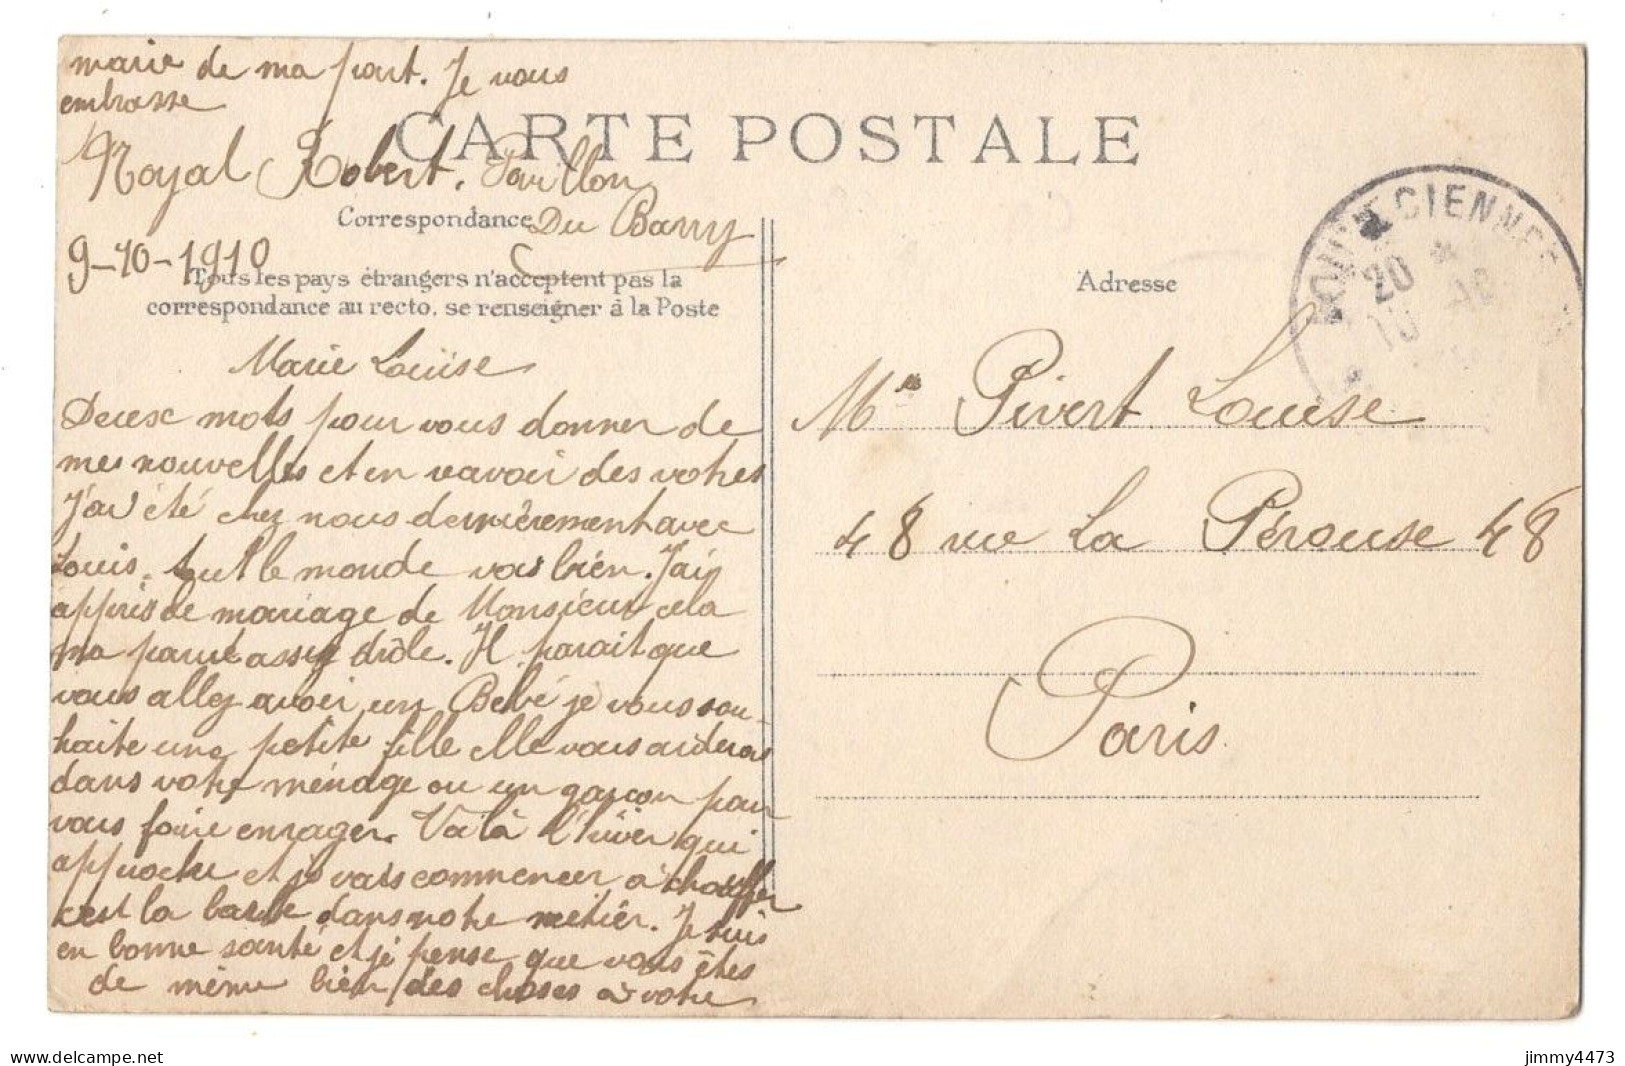 marie de ma part. Je vous
embrasse
Royal Robert. Pavillon
Du Barry
9-10-1910
CARTE POSTALE
Correspondance
Tous les pays étrangers n'acceptent pas la
correspondance au recto, se renseigner à la Poste
Marie Louise
Deux mots pour vous donner de
mes nouvelles et en ravoir des votres
J'ai été chez nous dernièrement avec
Louis. tout le monde vas bien. J'ais
appris le mariage de Monsieur cela
ma parut assez drôle. Il parait que
vous allez avoir un Bebé je vous sou-
haite une petite fille elle vous aideras
dans votre ménage ou un garçon pour
vous faire enrager. Voilà l'hiver qui
approche et je vais commencer à chauffer
cest la dans notre métier. Je suis
en bonne santé et je pense que vous êtes
de même bien des choses à votre
Adresse
Mlle Pivert Louise
48 rue La Pérouse 48
Paris
LOUVECIENNES
20
10
jimmy4473